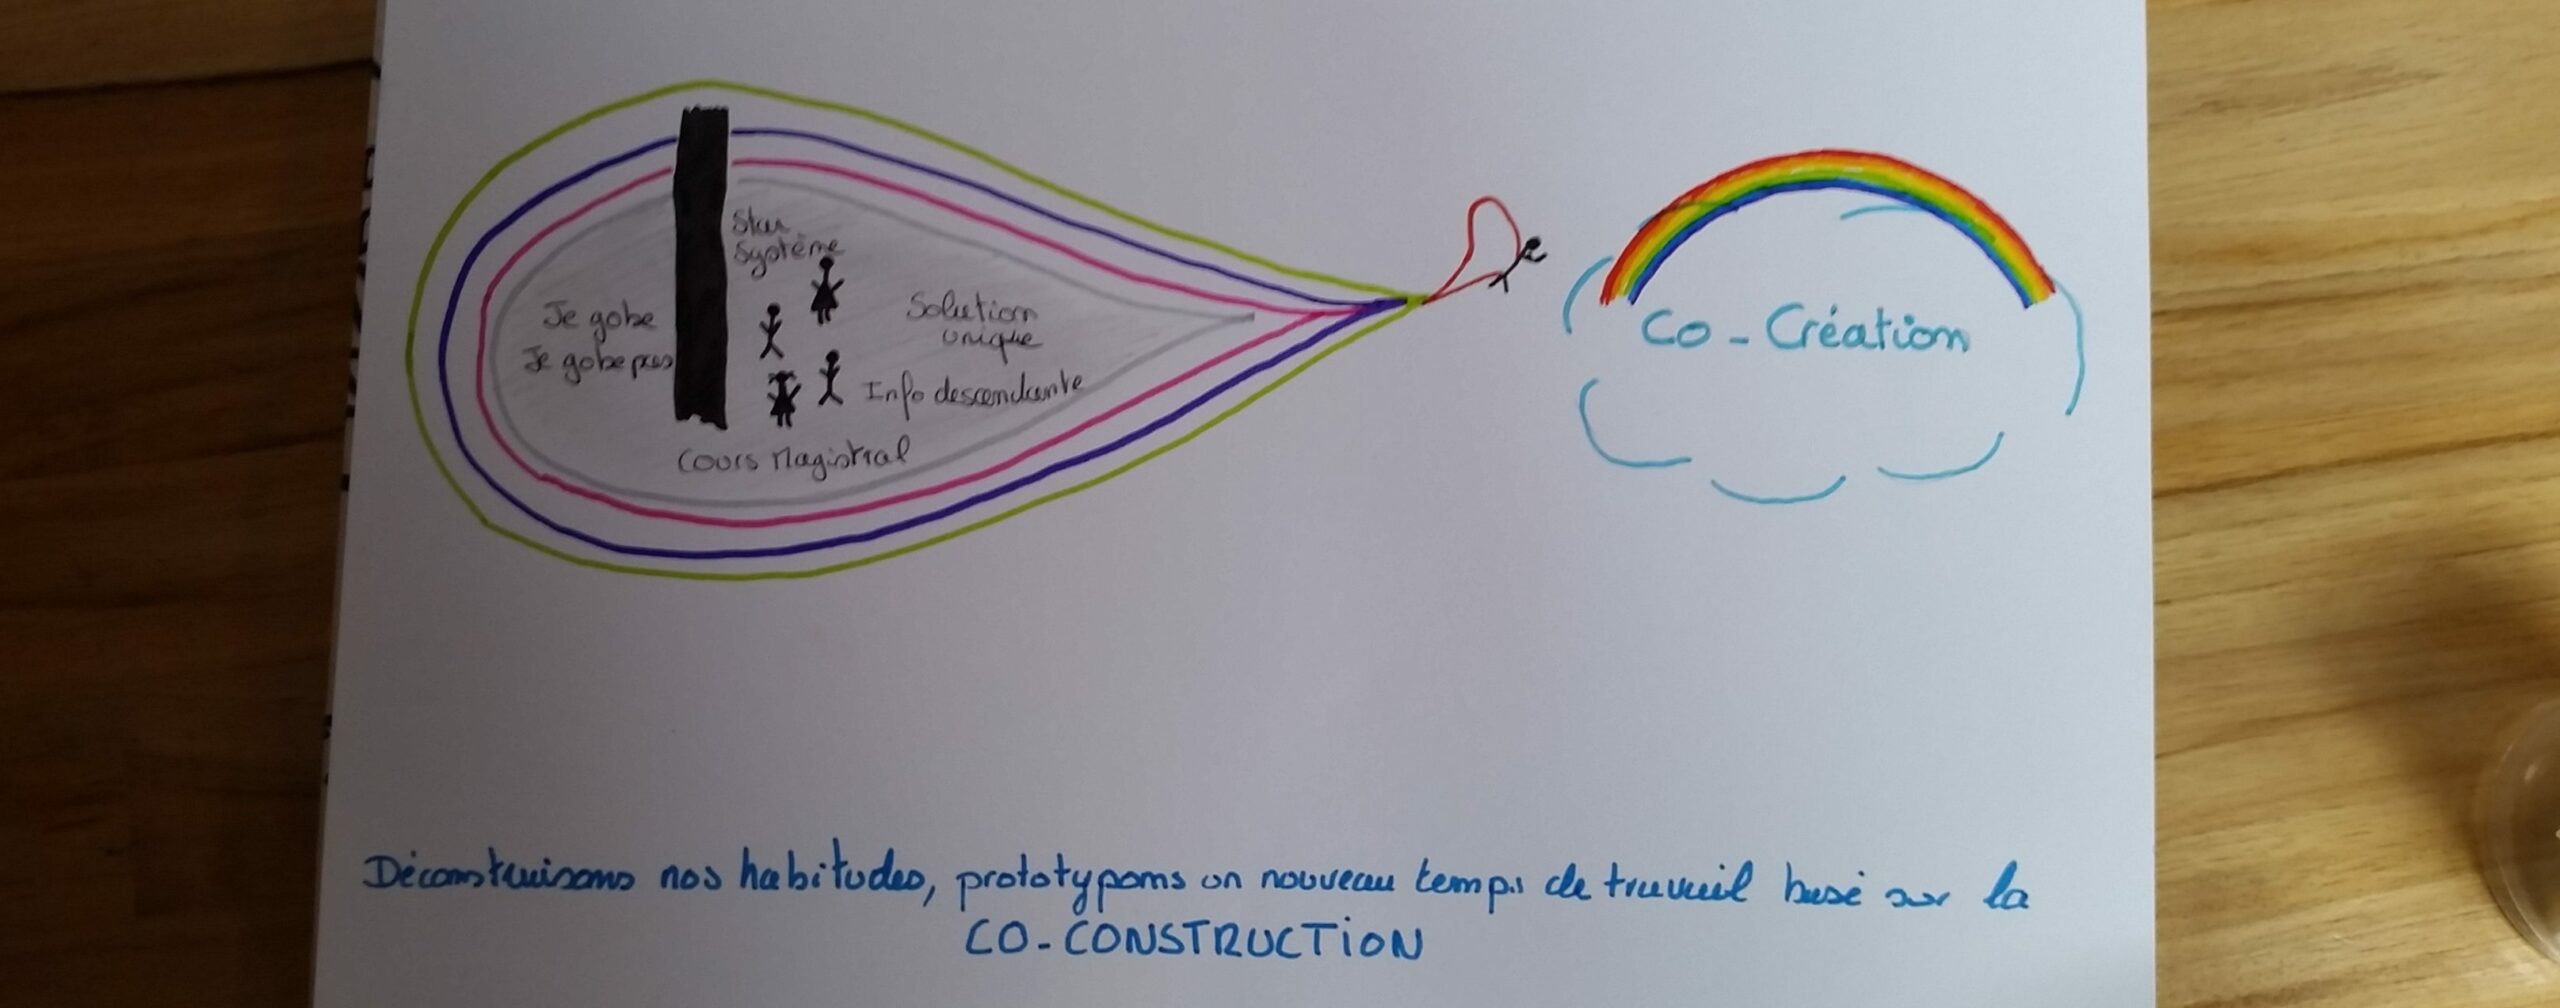 Star
Système
Je gobe
Je gobe pas
Solution
unique
Info descendante
Cours Magistral
Co - Création
Déconstruisons nos habitudes, prototypons un nouveau temps de travail basé sur la
CO-CONSTRUCTION